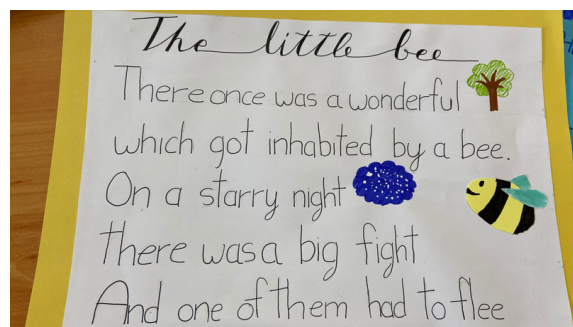 The little bee
There once was a wonderful
which got inhabited by a bee.
On a starry night
there was a big fight
And one of them had to flee